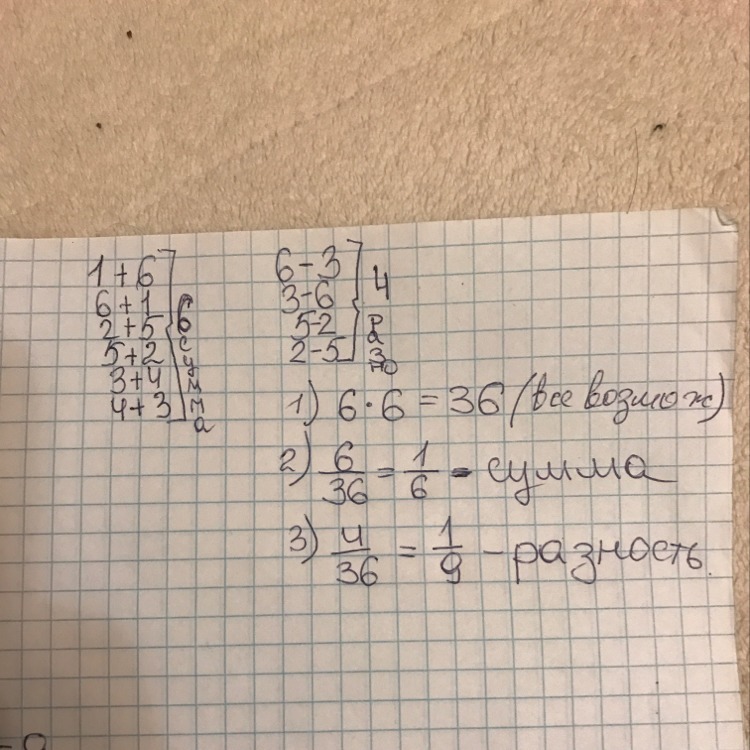 1 + 6
6 + 1
2 + 5
5 + 2
3 + 4
4 + 3
6
сумма
6 - 3
3 - 6
5 - 2
2 - 5
4
разно
1) 6 · 6 = 36 (все возмож)
2) 6/36 = 1/6 - сумма
3) 4/36 = 1/9 - разность.